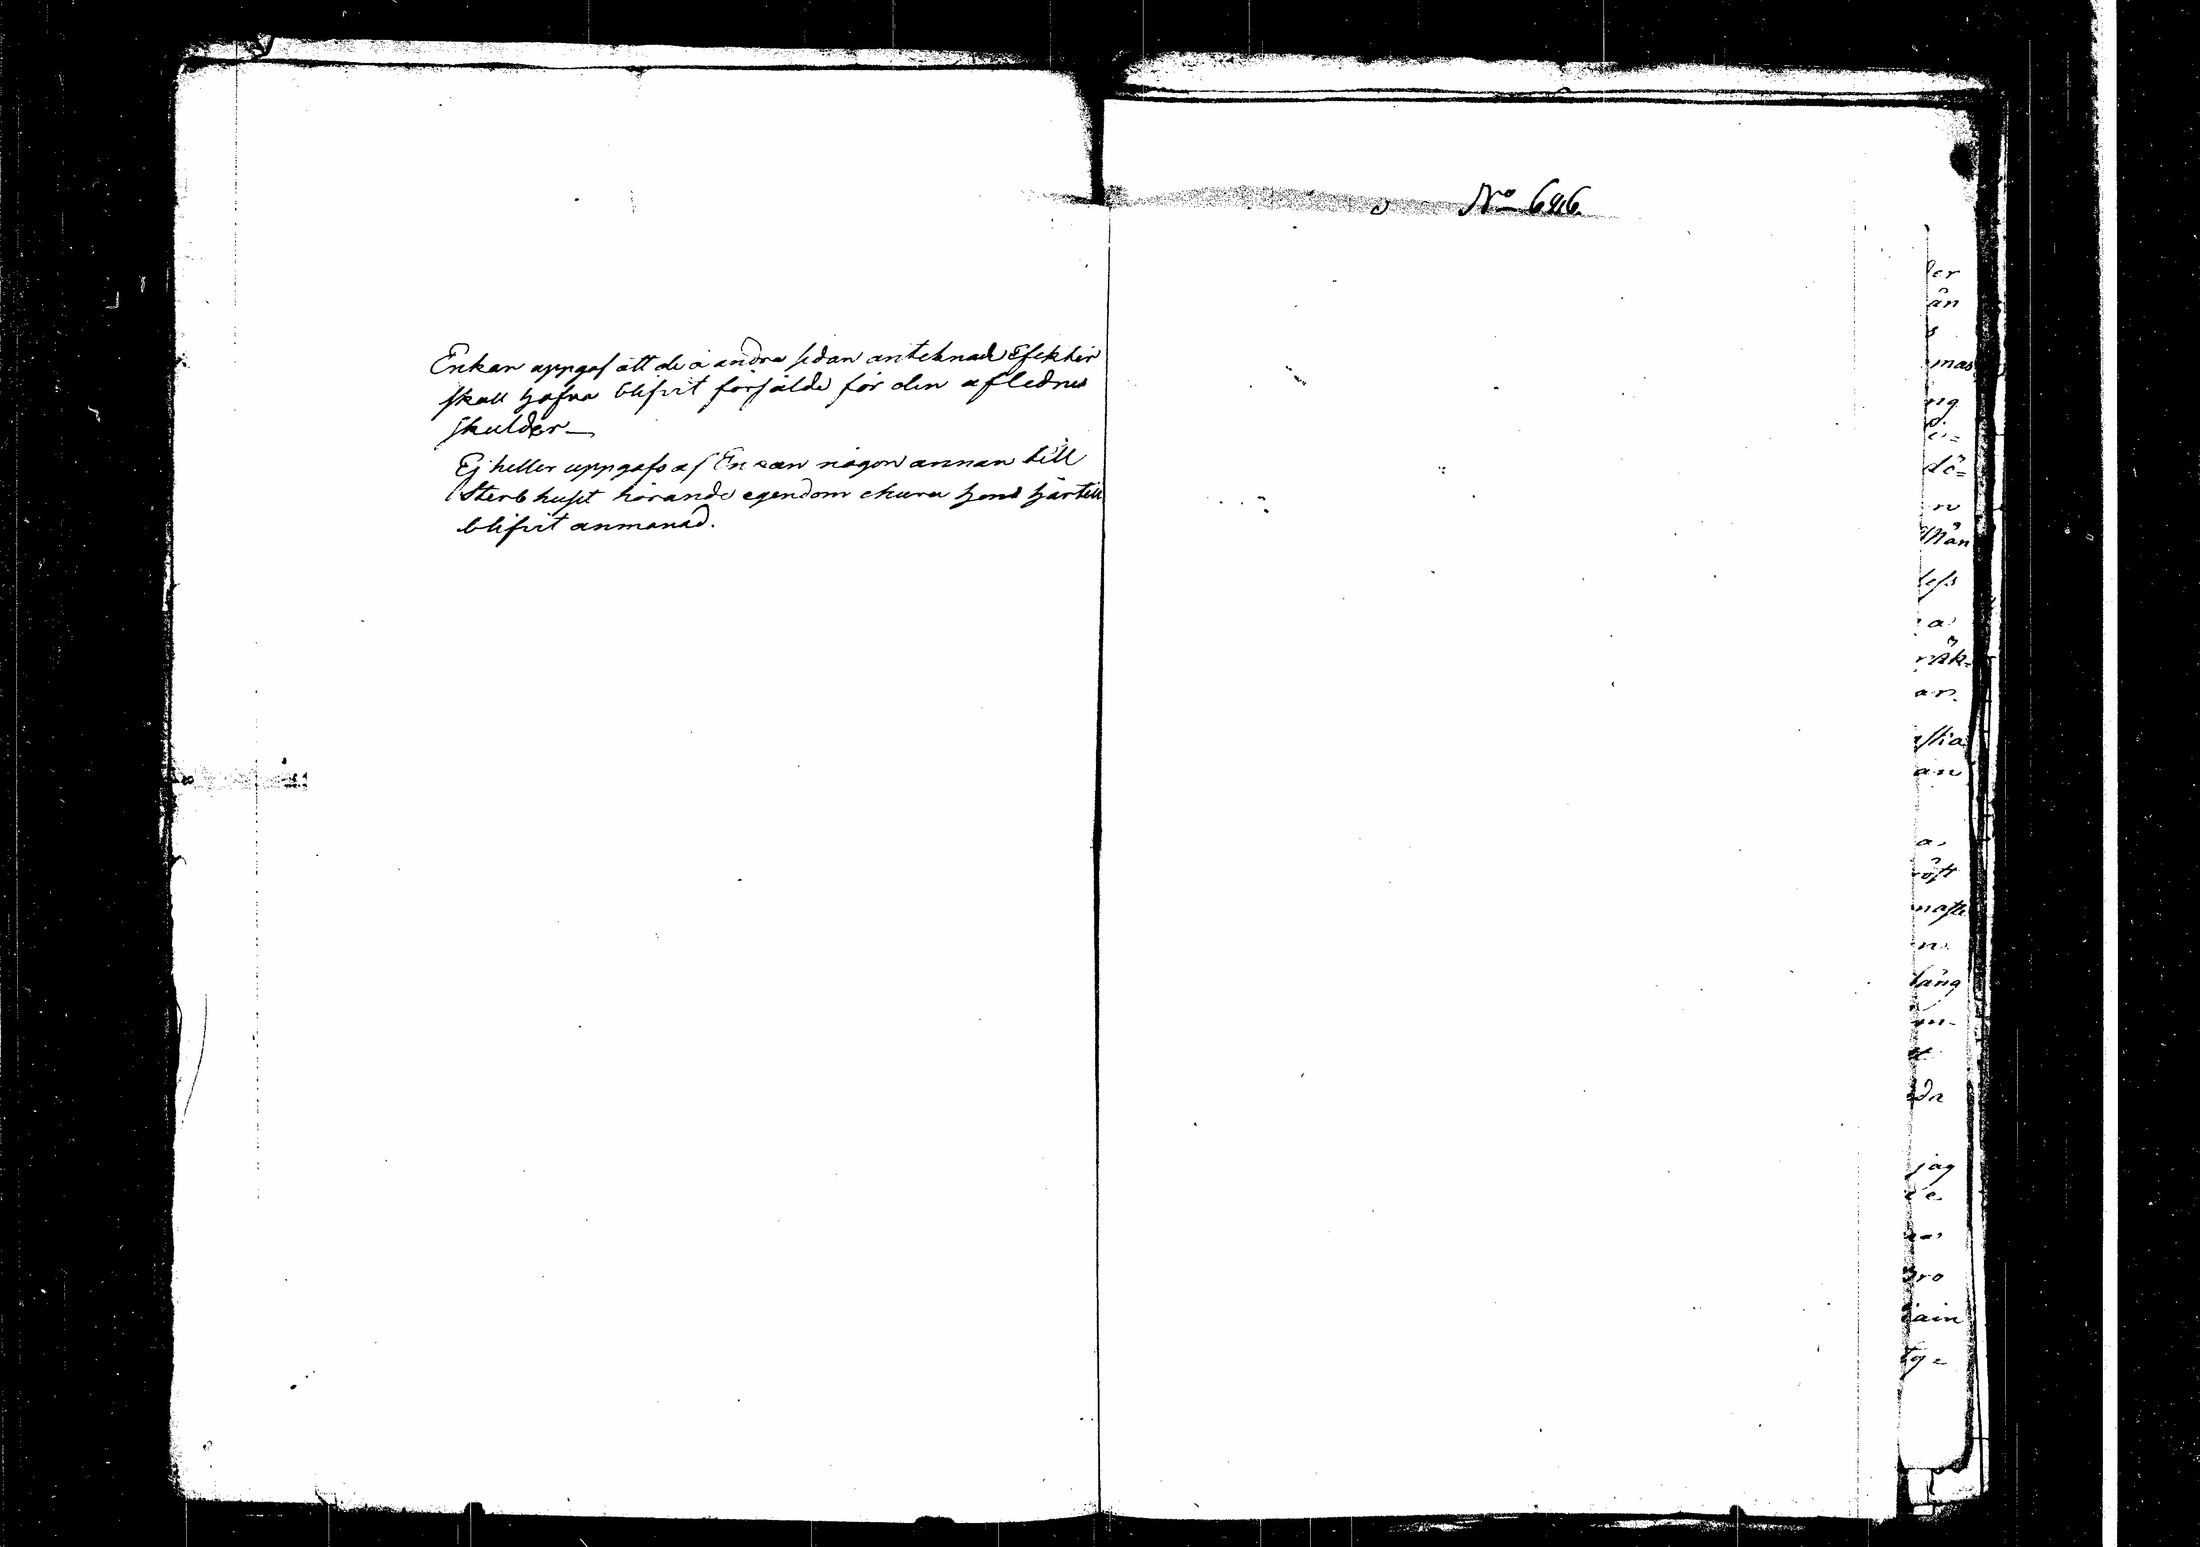 Enkan uppgaf att de å andra sidan antecknad Efekter
skall hafva blifvit försålde för den aflednes
skulder
Ej heller uppgafs af Enkan någon annan till
Sterbhuset hörande egendom ehuru hon härtill
blifvit anmanad.
No 646.
ler
ån
s
mas
ng
dö=
n
Mån
less
a
räk=
an
an
a
röst
n
läng
m
et
da
jag
e
bro
tain